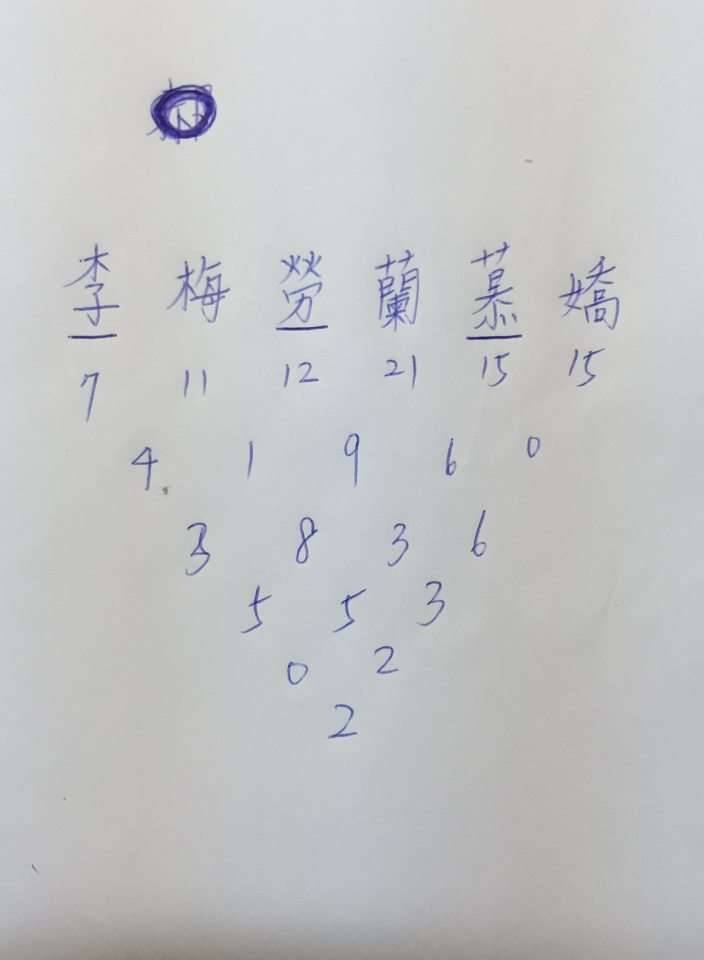 李 梅 勞 蘭 慕 嬌
7 11 12 21 15 15
4 1 9 6 0
3 8 3 6
5 5 3
0 2
2